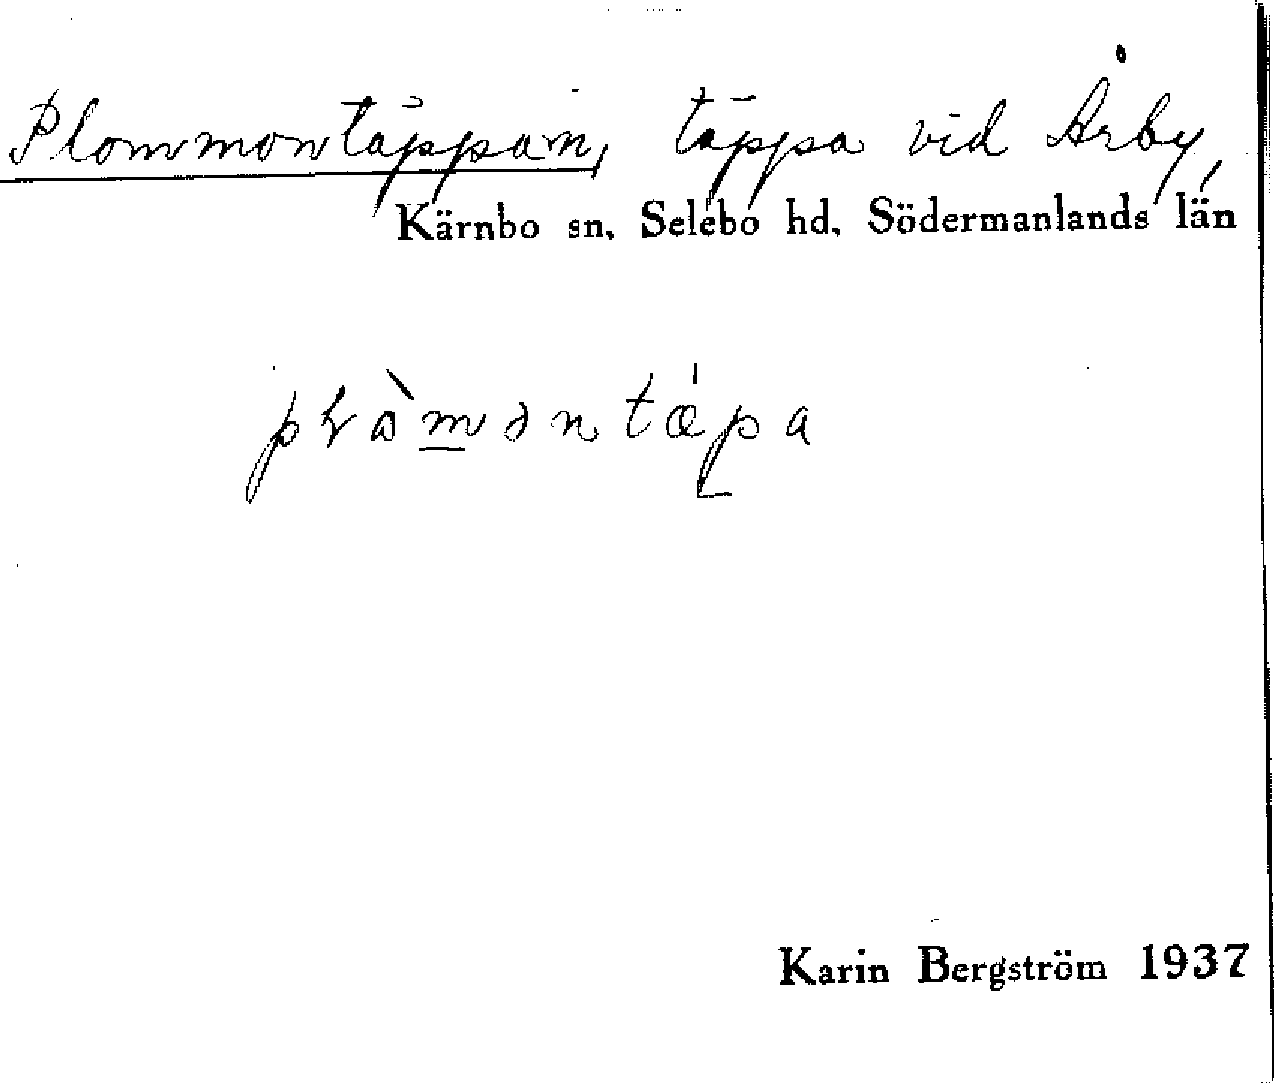 Plommontäppan, täppa vid Årby,
Kärnbo sn, Selebo hd, Södermanlands län
Karin Bergström 1937